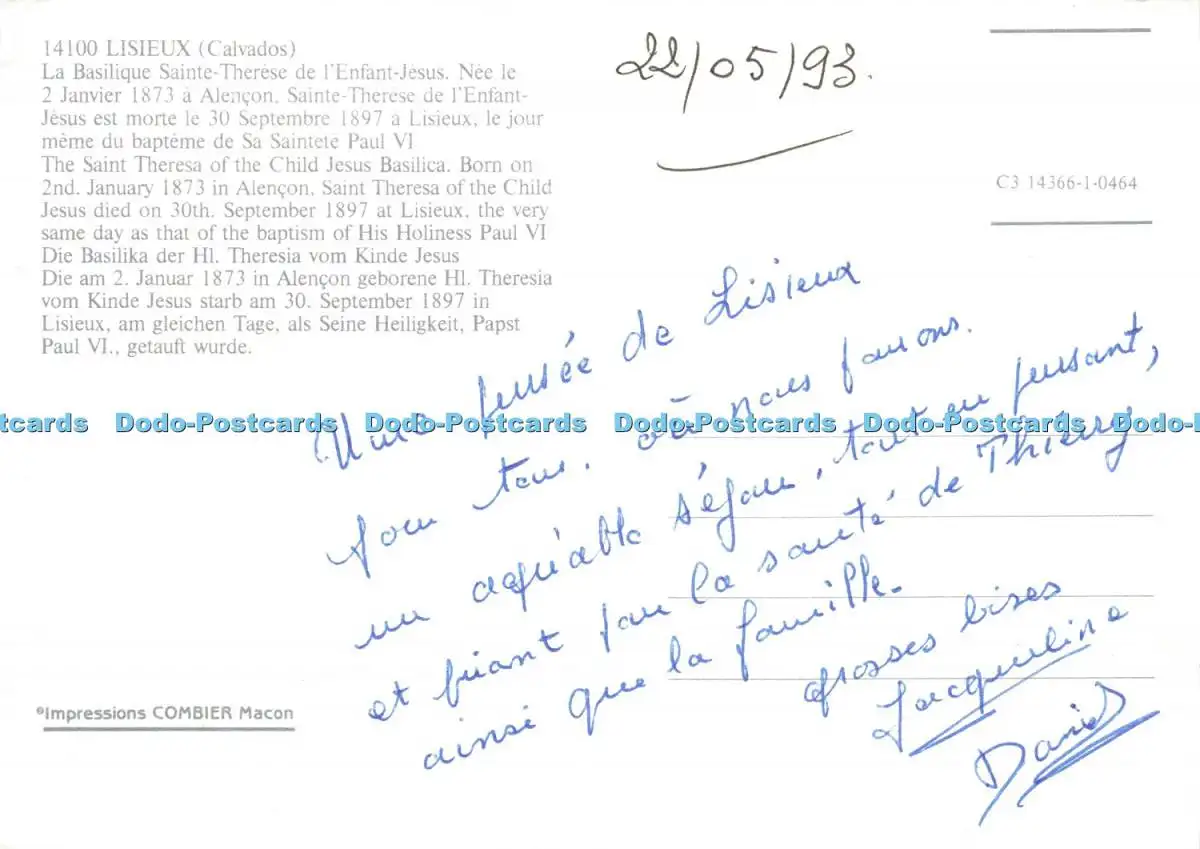 14100 LISIEUX (Calvados)
La Basilique Sainte-Thérèse de l'Enfant-Jésus. Née le
2 Janvier 1873 à Alençon, Sainte-Thérèse de l'Enfant-
Jésus est morte le 30 Septembre 1897 à Lisieux, le jour
même du baptême de Sa Sainteté Paul VI
The Saint Theresa of the Child Jesus Basilica. Born on
2nd. January 1873 in Alençon, Saint Theresa of the Child
Jesus died on 30th. September 1897 at Lisieux, the very
same day as that of the baptism of His Holiness Paul VI
Die Basilika der Hl. Theresia vom Kinde Jesus
Die am 2. Januar 1873 in Alençon geborene Hl. Theresia
vom Kinde Jesus starb am 30. September 1897 in
Lisieux, am gleichen Tage, als Seine Heiligkeit, Papst
Paul VI., getauft wurde.
22/05/93.
C3 14366-1-0464
Une pensée de Lisieux
pour tous. où nous faisons.
un agréable séjour, tout en pensant,
et priant pour la santé de Thierry
ainsi que la famille.
grosses bises
Jacqueline
Daniel
Dodo-Postcards Dodo-Postcards Dodo-Postcards Dodo-Postcards
©Impressions COMBIER Macon